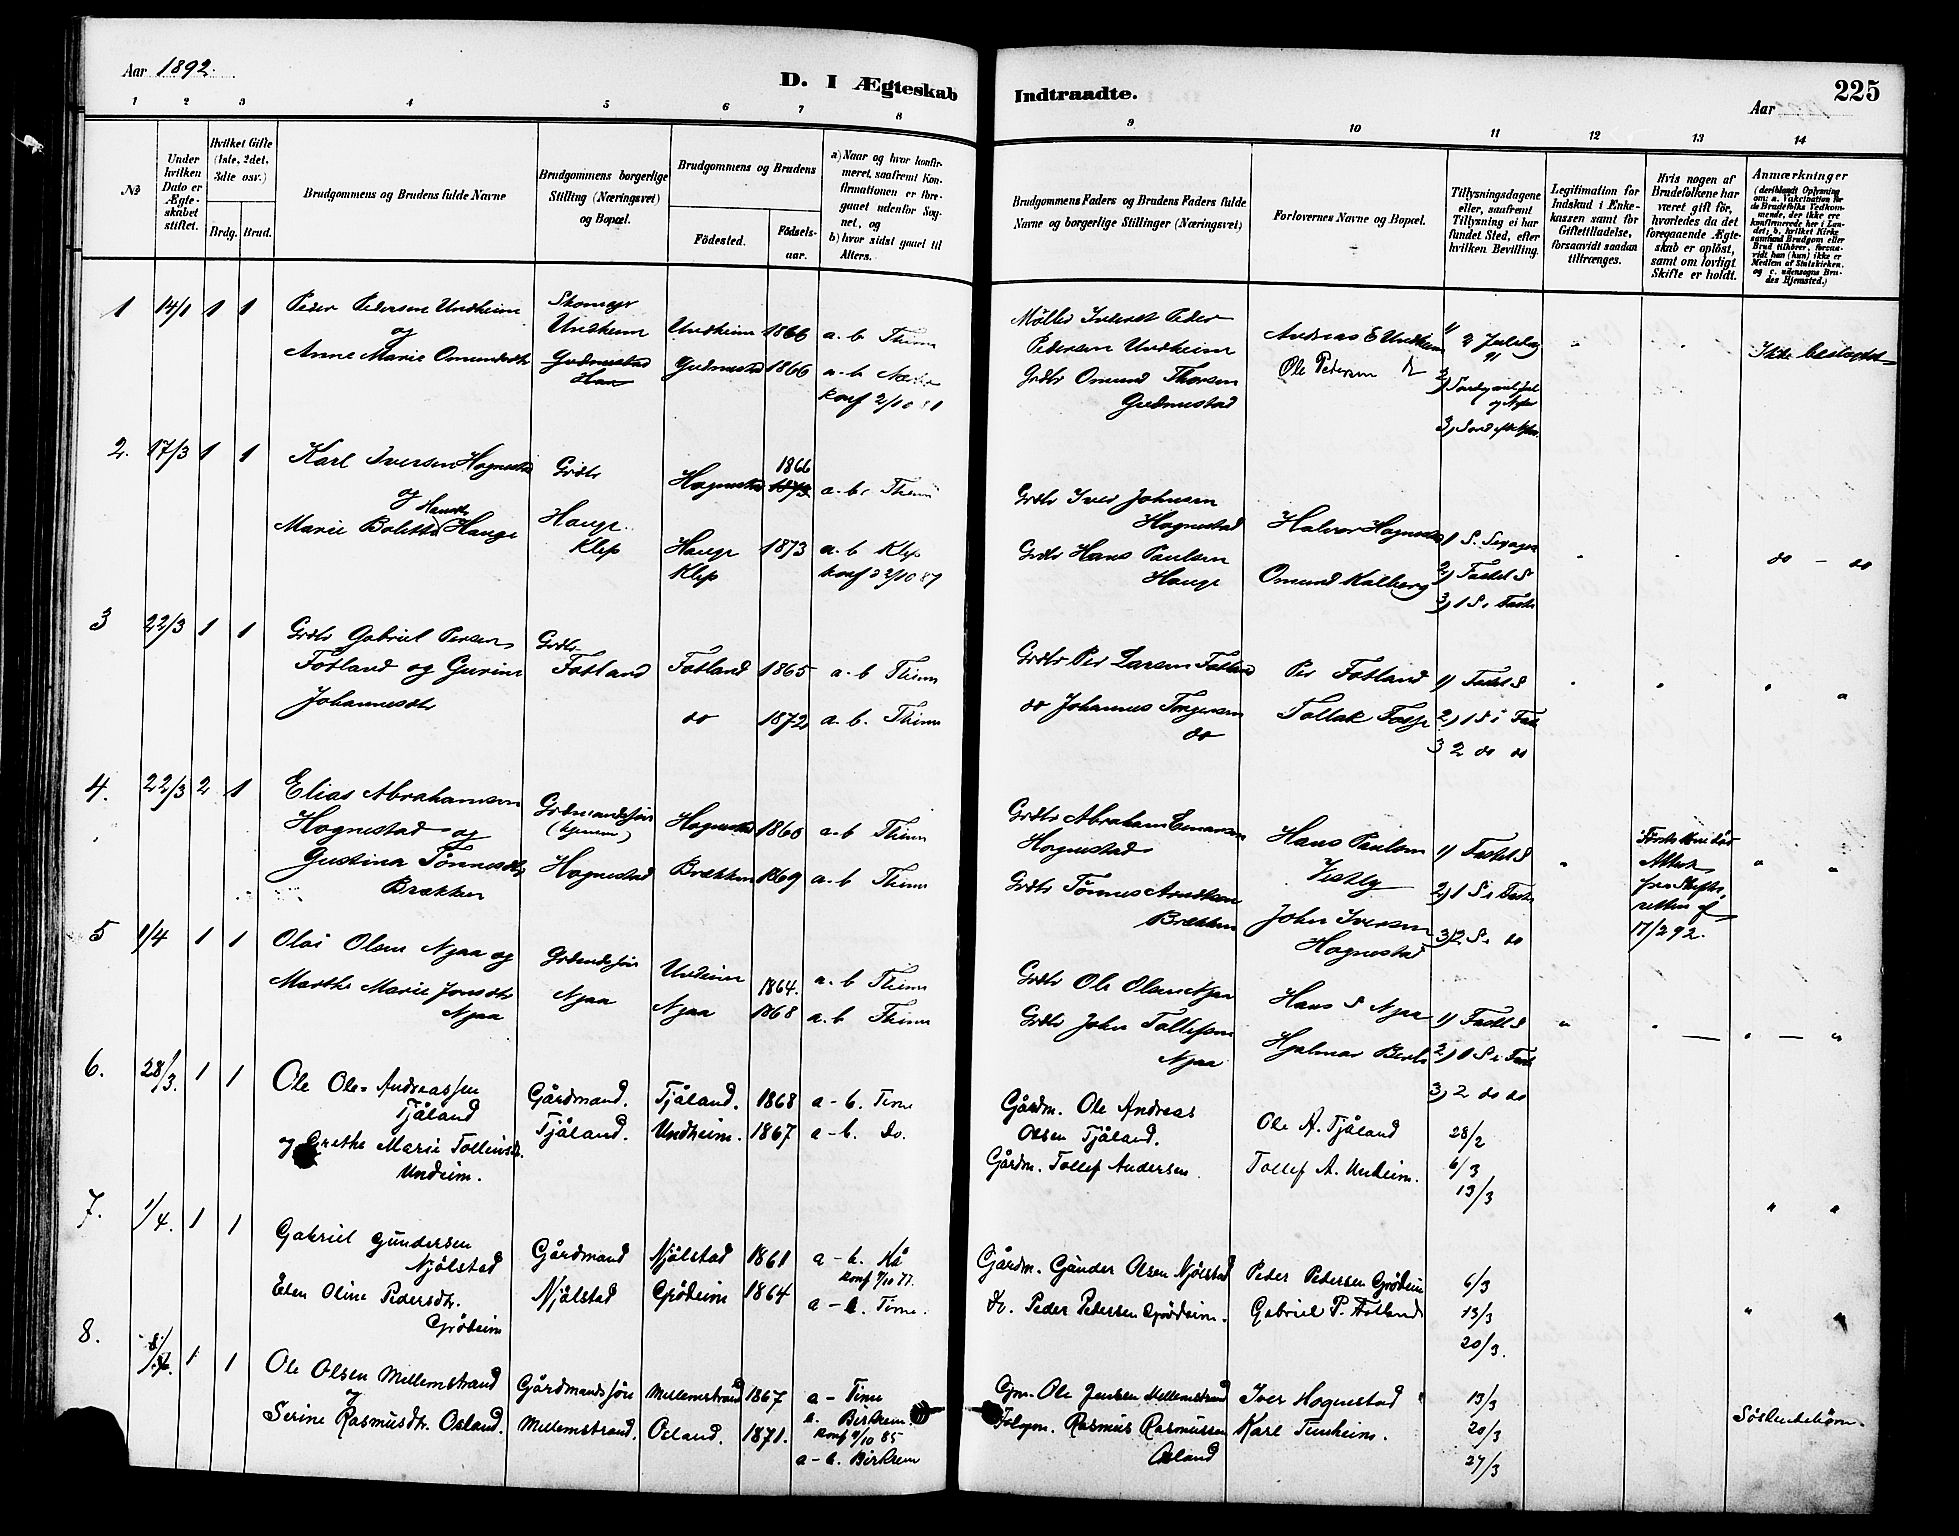 Aar 1892.
D. I Ægteskab Indtraadte.
Aar
225
1 2 3 4 5 6 7 8 9 10 11 12 13 14
No
Under hvilken Dato er Ægteskabet stiftet.
Hvilket Gifte (1ste, 2det, 3die osv.)
Brdg. Brud.
Brudgommens og Brudens fulde Navne
Brudgommens borgerlige Stilling (Næringsvei) og Bopæl.
Brudgommens og Brudens
Födested.
Födselsaar.
a) Naar og hvor konfirmeret, saafremt Konfirmationen er foregaaet udenfor Sognet, og
b) hvor sidst gaaet til Alters.
Brudgommens Faders og Brudens Faders fulde Navne og borgerlige Stillinger (Næringsvei)
Forlovernes Navne og Bopæl.
Tillysningsdagene eller, saafremt Tillysning ei har fundet Sted, efter hvilken Bevilling.
Legitimation for Indskud i Enkekassen samt for Giftetilladelse, forsaavidt saadan tiltrænges.
Hvis nogen af Brudefolkene har været gift för, hvorledes da det foregaaende Ægteskab er oplöst, samt om lovligt Skifte er holdt.
Anmærkninger
(deriblandt Oplysning om: a. Vakcination for de Brudefolks Vedkommende, der ikke ere konfirmerede her i Landet; b. hvilket Kirkesamfund Brudgom eller Brud tilhörer, forsaavidt han (hun) ikke er Medlem af Statskirken, og c. udensogns Brudes Hjemsted.)
1 14/1 1 1 Peder Pedersen Undheim
og
Anne Marie Omundsdtr
Undheim
Gudmestad
Haa
Undheim 1866 a. b Thime
Gudmestad 1866 a. b
konf 2/10 81
Pedersen Undheim
Grdbr Omund Thorsen
Gudmestad
Andreas E Undheim
Ole Pedersen
Ikke beslægtet
2. 17/3 1 1 Karl Iversen Hognestad
og Hansdtr
Marie Bolette Hauge
Grdbr
Hauge
Klep
Hognestad 1866 a. b. Thime
Hauge 1873 a. b Klep
Klep konf 22/10 87
Grdbr Iver Johnsen
Hognestad
Grdbr Hans Paulsen
Hauge
Halvor Hognestad
Omund Kalberg
do - do
3 22/3 1 1 Grdbr Gabriel Persen
Fotland og Gurine
Johannesdtr
Grdbr
Fotland
Fotland 1865 a. b Thime
do 1872 a. b. Thime
Grdbr Per Larsen Fotland
do Johannes Torgersen
do
Per Fotland
Tollak Fosse
1) Fastel S
2) 1 S i Fast
3 2 do do
4. 22/3 2 1 Elias Abrahamsen
Hognestad og
Gustina Tønnesdtr
Brækken
Hognestad
Hognestad 1860 a. b Thime
Brækken 1869 a. b Thime
Grdbr Abraham
Hognestad
Grdbr Tønnes
Brækken
Hans Paulsen
Vestly
John Iversen
Hognestad
1) Fastel S
2) 1 S i Fast
3) 2 S. do
fra Skifteretten af
17/2 92.
5 1/4 1 1 Olai Olsen Njaa og
Marthe Marie Jonsdtr
Njaa
Njaa
Undeim 1864. a. b Thime
Njaa 1868 a. b Thime
Grdbr Ole Olsen Njaa
Grdbr John Tollefsen
Njaa
Hans S Njaa
Hjalmar Berls
1) Fastel S
2) 1 S i Fast
3) 2 do do
6. 28/3. 1 1 Ole Ole-Andreassen
Tjåland
og Grethe Marie Tollevsdr.
Undeim.
Gårdmand.
Tjåland.
Tjåland. 1868 a - b. Time
Undheim. 1867 a - b. do.
Gårdm. Ole Andreas
Olsen Tjåland.
Gårdm. Tollef Andersen.
Ole A. Tjåland
Tollef A. Unheim.
28/2
6/3
13/3
7. 1/4. 1 1 Gabriel Gundersen
Njølstad
Elen Oline Pedersdtr.
Grödeim
Gårdmand
Njølstad
Njølstad 1861 a - b. Hå
konf 7/10 77.
Grödeim 1864 a - b. Time.
Gårdm. Gunder Olsen Njølstad
do. Peder Pedersen Grödeim.
Peder Pedersen Grödeim
Gabriel P. Fotland
6/3
13/3
20/3.
8. 1 1 Ole Olsen Mellemstrand
og
Serine Rasmusdtr. Osland.
Gårdmandssön
Mellemstrand.
Mellemstrand 1867 a - Time
b. Birkrem.
konf 4/10 85
Osland. 1871. a - b. Birkrem
Gm. Ole Jenssen Mellemstrand
Rasmus Rasmussen
Osland
Iver Hognestad
Karl Tunheim.
13/3
20/3
27/3
Söskendebörn.